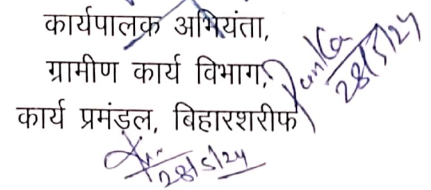 कार्यपालक अभियंता,
ग्रामीण कार्य विभाग,
कार्य प्रमंडल, बिहारशरीफ
28/5/24
28/5/24